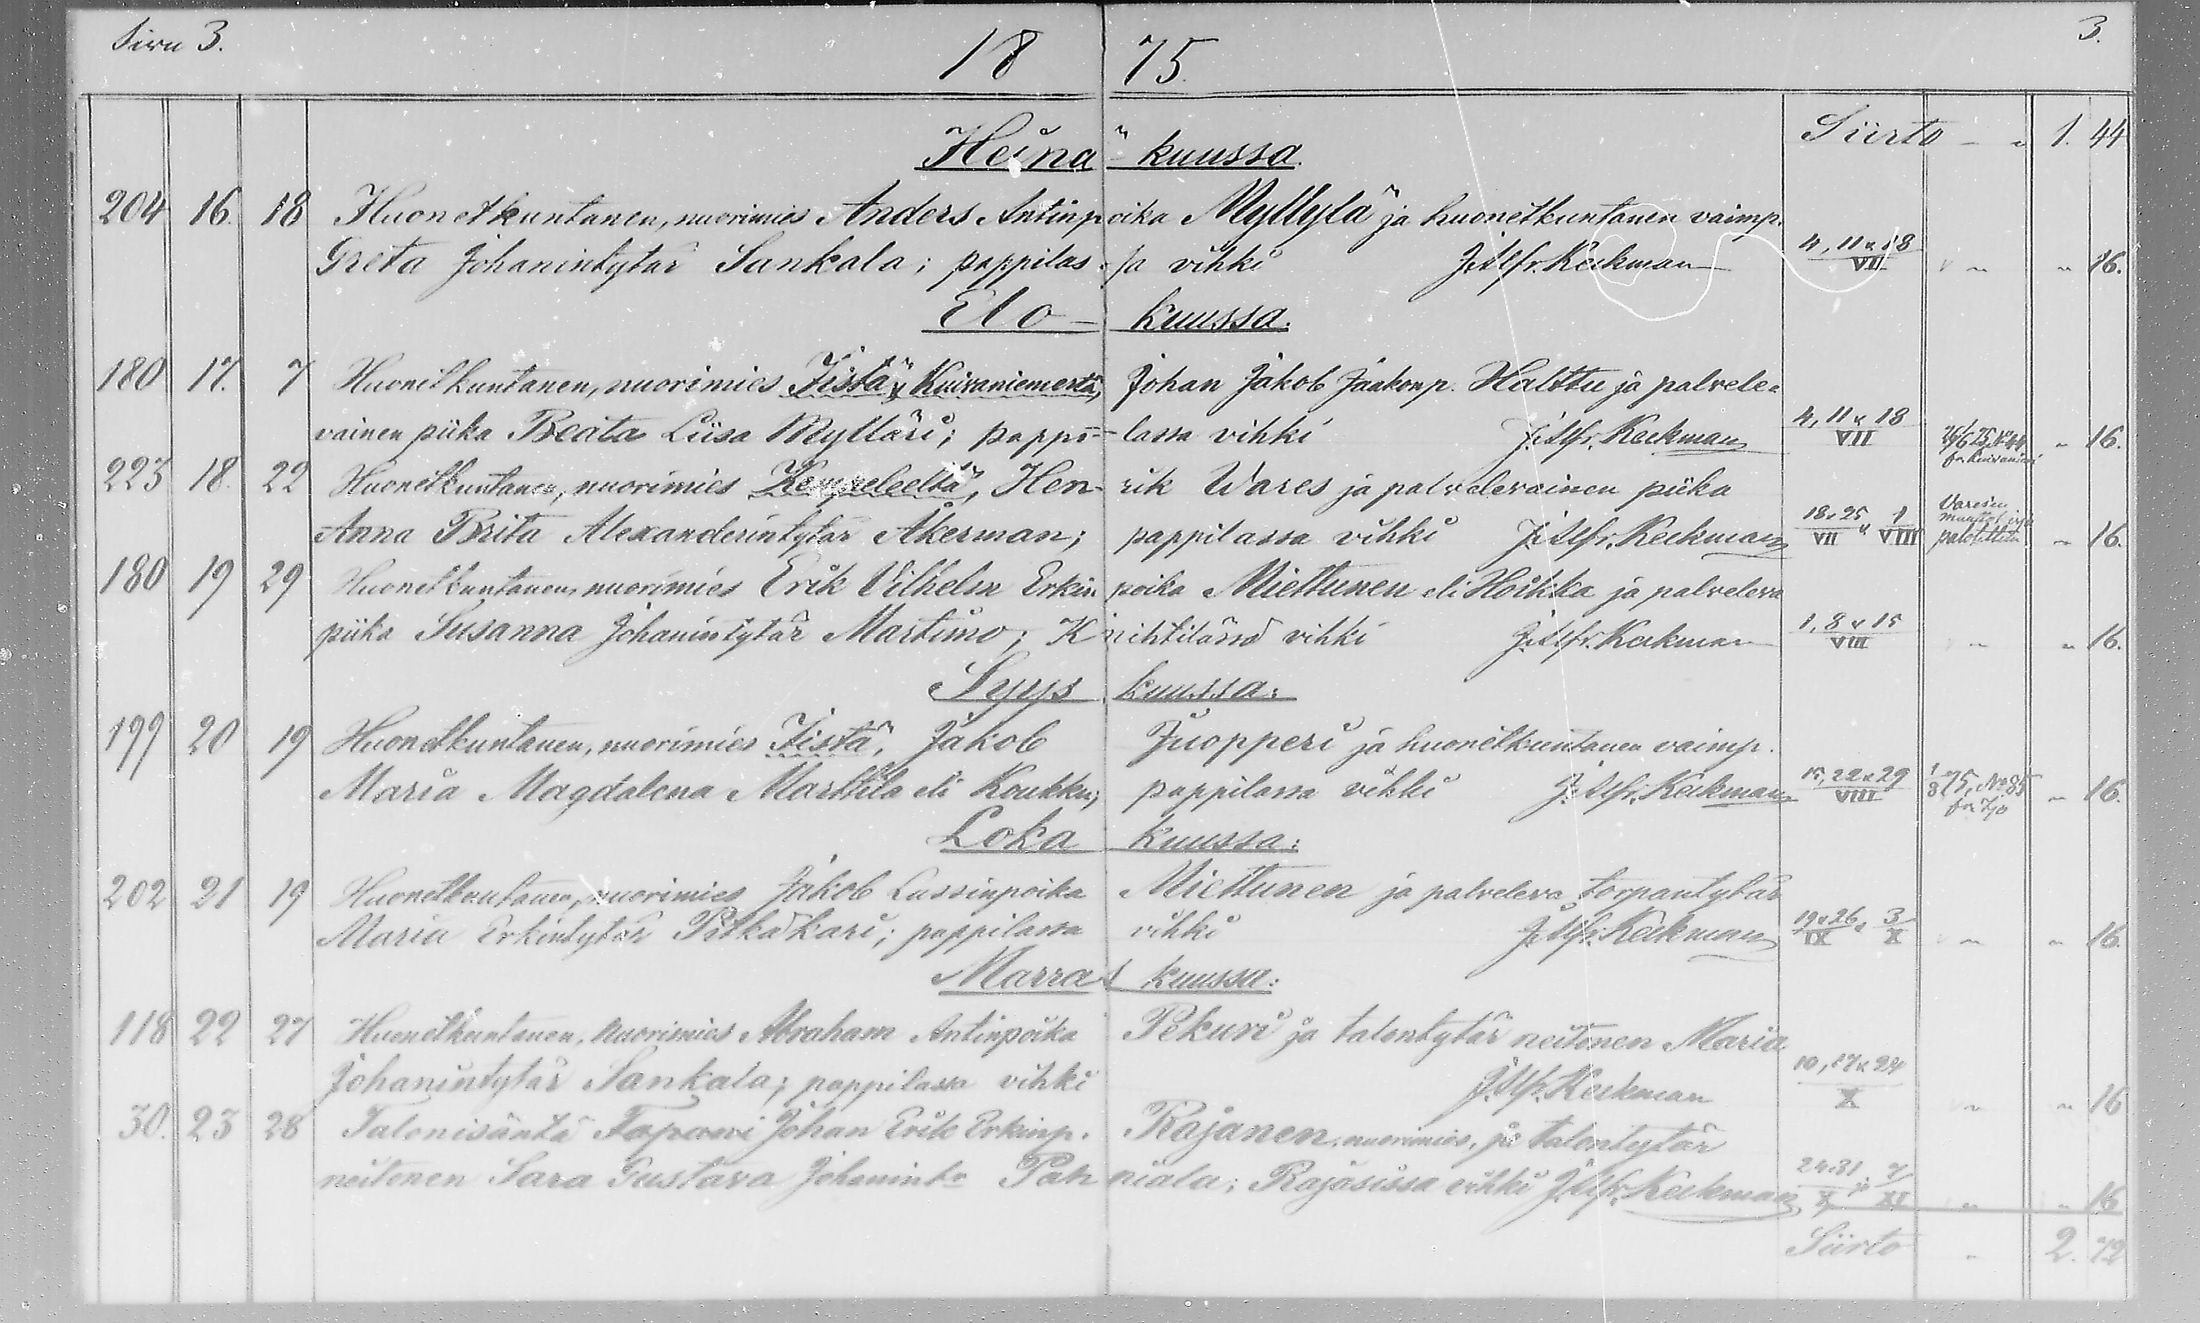 Sivu 3. 3.
18 75.
Siirto - " 1. 44
Heinä - kuussa.
204 16. 18 Huonetkuntanen, nuorimies Anders Antinpoika Myllylä ja huonetkuntanen vaimp.
Greta Johanintytär Sankala; pappilassa vihki J. Alfr. Keckman 4, 11 & 18 VII " " 16.
Elo - kuussa.
180 17. 7 Huonetkuntanen, nuorimies Iistä Kuivaniemertä, Johan Jakob Jaakonp. Halttu ja palvele-
vainen piika Beata Liisa Mylläri; pappi- lassa vihki J. Alfr. Keckman 4, 11 & 18 VII " 16.
223 18. 22 Huonetkuntanen, nuorimies Kempeleeltä, Hen- rik Wares ja palvelevainen piika
Anna Brita Alexanderintytär Åkerman; pappilassa vihki J. Alfr. Keckman 18 & 25 VII & 1 VIII " 16.
180 19 29 Huonetkuntanen, nuorimies Erik Vilhelm Erkin poika Miettunen eli Hoikka ja palveleva
piika Susanna Johanintytär Martimo; Knihtilässä vihki J. Alfr. Keckman 1, 8 & 15 VIII " " 16.
Syys kuussa:
199 20 19 Huonetkuntanen, nuorimies Iistä, Jakob Juopperi ja huonetkuntanen vaimp.
Maria Magdalena Marttila eli Koukku; pappilassa vihki J. Alfr. Keckman 15, 22 & 29 VIII 1/8 75, No 85 fr. Ijo " 16.
Loka kuussa:
202 21 19 Huonetkuntanen, nuorimies Jakob Lassinpoika Miettunen ja palveleva torpantytär
Maria Erkintytär Pitkäkari; pappilassa vihki J. Alfr. Keckman 19 & 26 IX & 3 X " " 16.
Marras kuussa:
118 22 27 Huonetkuntanen, nuorimies Abraham Antinpoika Pekuri ja talontytär neitonen Maria
Johanintytär Sankala; pappilassa vihki J. Alfr. Keckman 10, 17 & 24 X " " 16
30. 23 28 Talonisäntä Tapani Johan Erik Erkinp. Rajanen, nuorimies, ja talontytär
neitonen Sara Gustava Johanint. Pahniala; Rajasissa vihki J. Alfr. Keckman 24. 31 X ja 7 XI " " 16
Siirto " 2. 72